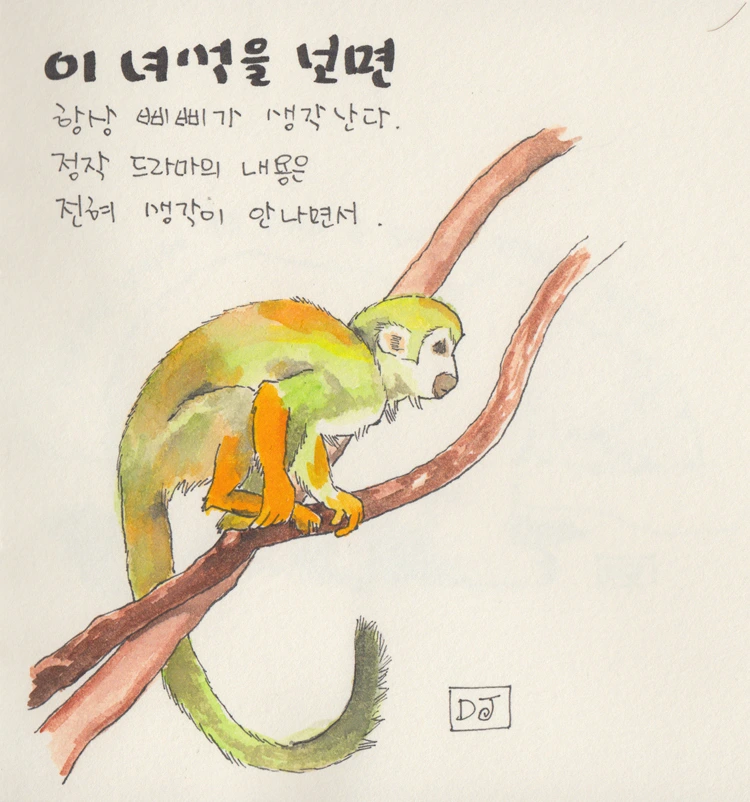 이 녀석을 보면
항상 삐삐가 생각난다.
정작 드라마의 내용은
전혀 생각이 안나면서.
DJ